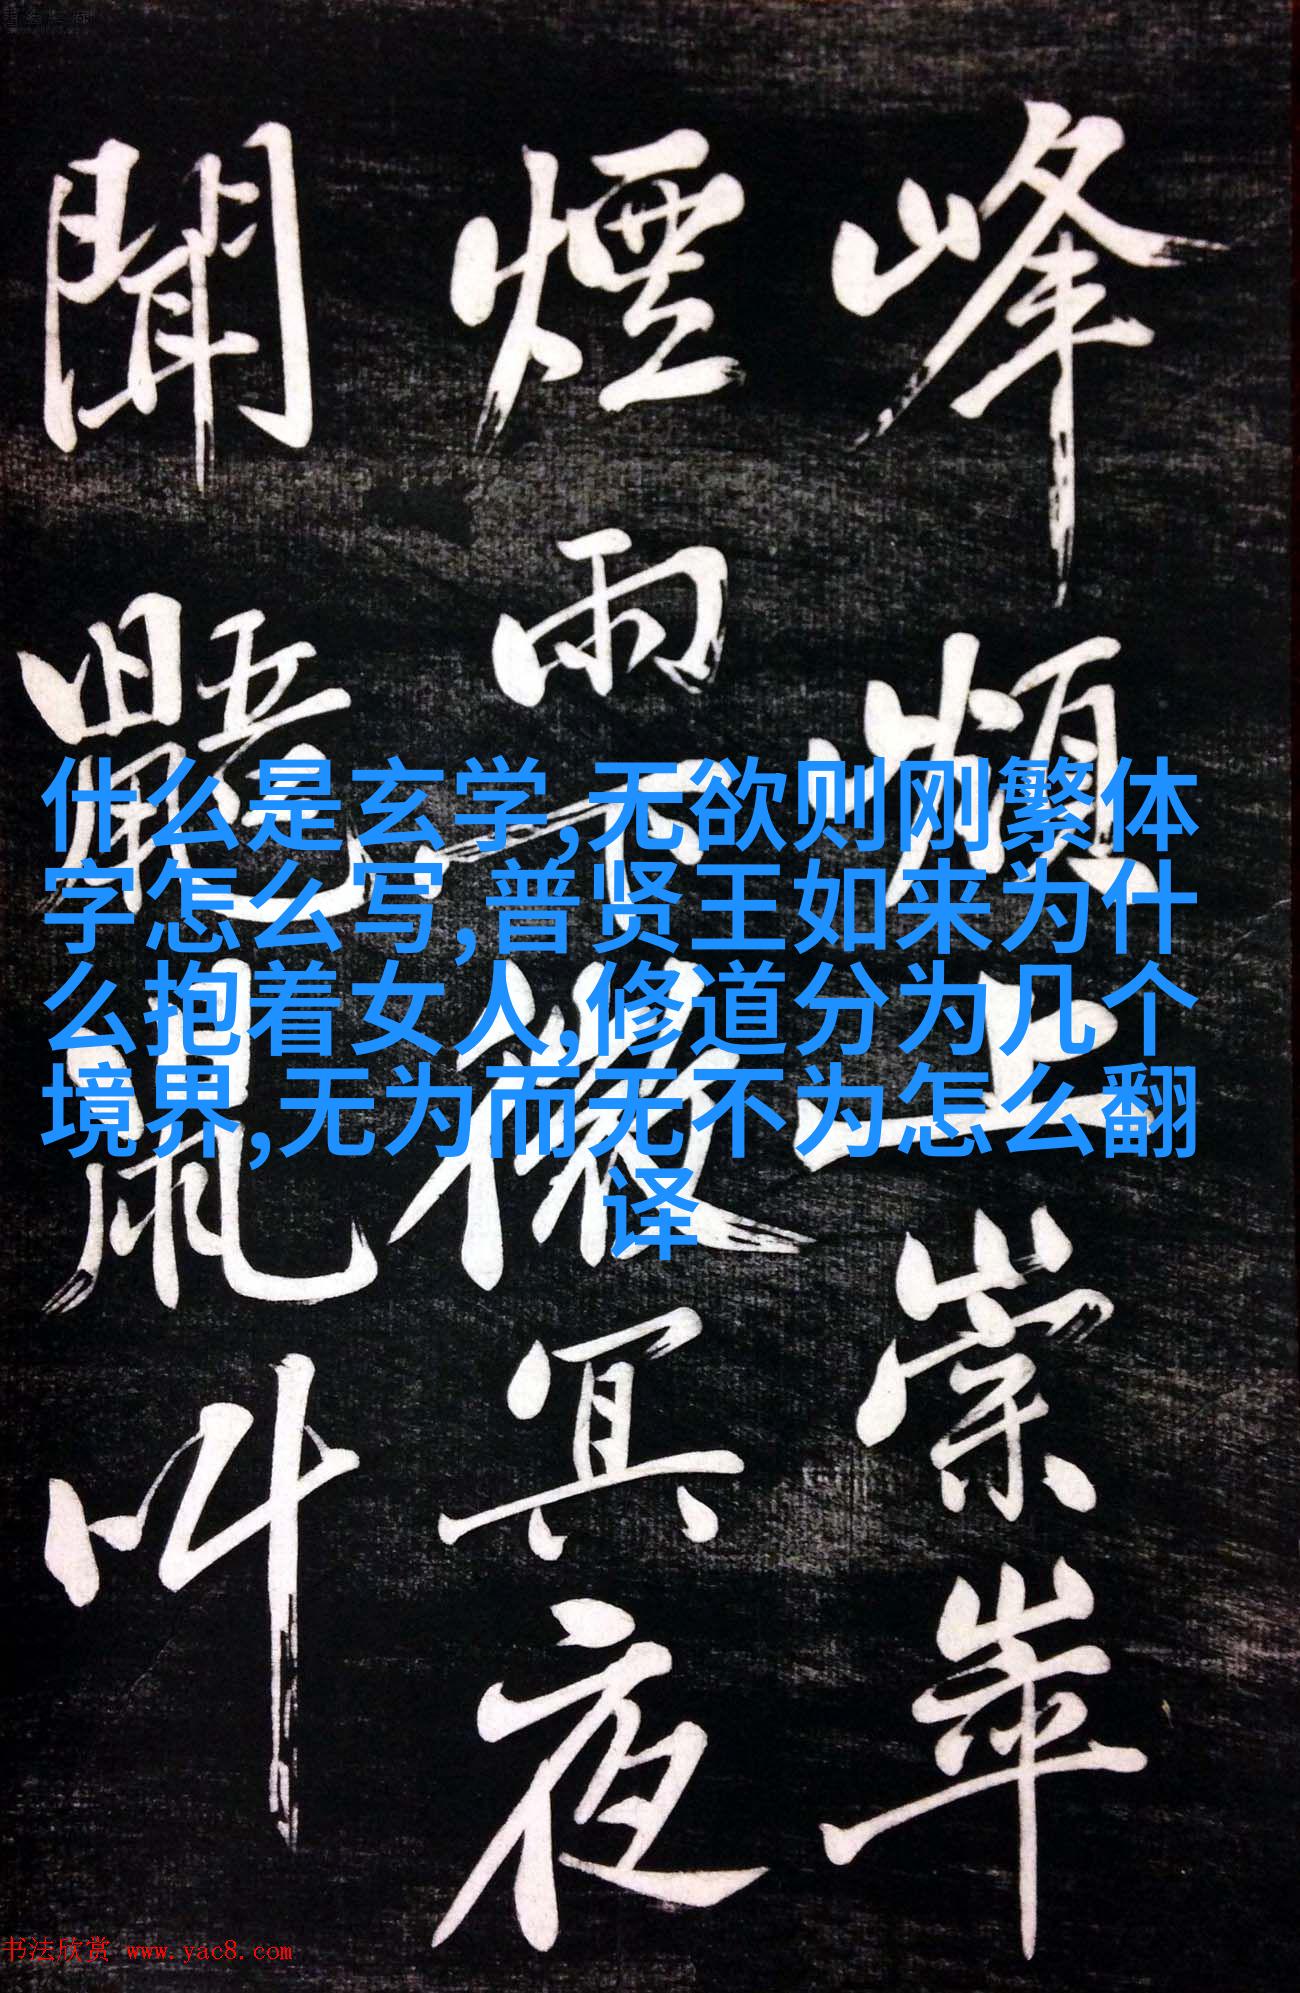 峰上崇崒
煙雨下微冥夜
聞鼯鼠叫
什么是玄学,无欲则刚繁体
字怎么写,普贤王如来为什
么抱着女人,修道分为几个
境界,无为而无不为怎么翻
译
书法欣赏 www.yac8.com